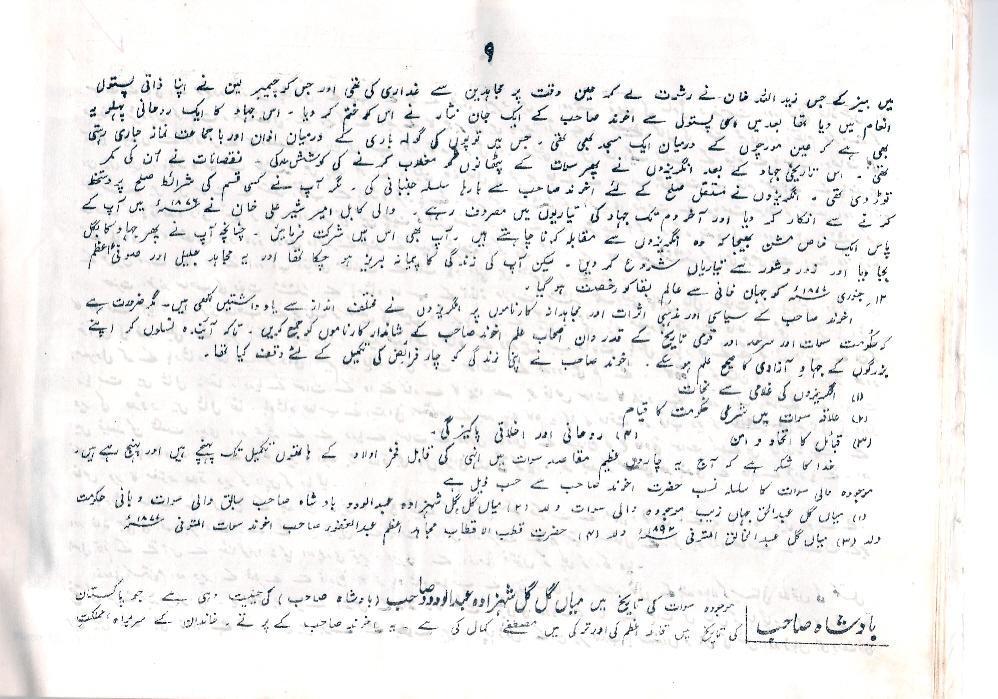 ۹
میں ہیز کے جس زید اللہ خان نے رشوت لے کر عین وقت پر مجاہدین سے غداری کی تھی اور جس کو چیمبر لین نے اپنا ذاتی پستول
انعام میں دیا تھا بعد میں اسی پستول سے اخوند صاحب کے ایک جان نثار نے اس کو ختم کر دیا ۔ اس جہاد کا ایک روحانی پہلو یہ
بھی ہے کہ عین مورچوں کے درمیان ایک مسجد بھی تھی ۔ جس میں توپوں کی گولہ باری کے درمیان اذان اور باجماعت نماز جاری رہتی
تھی ۔ اس تاریخی جہاد کے بعد انگریزوں نے پھر سوات کے پٹھانوں کو مغلوب کرنے کی کوشش نہ کی ۔ نقصانات نے ان کی کمر
توڑ دی تھی ۔ انگریزوں نے مستقل صلح کے لئے اخوند صاحب سے بارہا سلسلہ جنبانی کی ۔ مگر آپ نے کسی قسم کی شرائط صلح پر دستخط
کرنے سے انکار کر دیا اور آخر دم تک جہاد کی تیاریوں میں مصروف رہے ۔ والی کابل امیر شیر علی خان نے ۱۸۷۶ء میں آپ کے
پاس ایک خاص مشن بھیجا کہ وہ انگریزوں سے مقابلہ کرنا چاہتے ہیں ۔ آپ بھی اس میں شرکت فرمائیں ۔ چنانچہ آپ نے پھر جہاد کا بگل
بجا دیا اور زور و شور سے تیاریاں شروع کر دیں ۔ لیکن آپ کی زندگی کا پیمانہ لبریز ہو چکا تھا اور یہ مجاہد جلیل اور صوفی اعظم
۱۲ جنوری ۱۸۷۷ء کو جہان فانی سے عالم بقا کو رخصت ہو گیا ۔
اخوند صاحب کے سیاسی اور مذہبی اثرات اور مجاہدانہ کارناموں پر انگریزوں نے مختلف انداز سے یادداشتیں لکھی ہیں۔ مگر ضرورت ہے
کہ حکومت سوات اور سرحد اور قومی تاریخ کے قدر دان اصحاب علم اخوند صاحب کے شاندار کارناموں کو جمع کریں ۔ تاکہ آئیندہ نسلوں کو اپنے
بزرگوں کے جہاد آزادی کا صحیح علم ہو سکے ۔ اخوند صاحب نے اپنی زندگی کو چار فرایض کی تکمیل کے لئے وقف کیا تھا ۔
(۱) انگریزوں کی غلامی سے نجات
(۲) علاقہ سوات میں شرعی حکومت کا قیام
(۳) قبائل کا اتحاد و امن (۴) روحانی اور اخلاقی پاکیزگی ۔
خدا کا شکر ہے کہ آج یہ چاروں عظیم مقاصد سوات میں انہی کی قابل فخر اولاد کے ہاتھوں تکمیل تک پہنچے ہیں اور پہنچ رہے ہیں ۔
موجودہ والی سوات کا سلسلہ نسب حضرت اخوند صاحب سے حسب ذیل ہے
(۱) میاں گل عبدالحق جہاں زیب موجودہ والی سوات ولد (۲) میاں گل گل شہزادہ عبدالودود بادشاہ صاحب سابق والی سوات و بانی حکومت
ولد (۳) میاں گل عبدالخالق المتوفی ۱۸۹۲ء ولد (۴) حضرت قطب الاقطاب مجاہد اعظم عبدالغفور صاحب اخوند سوات المتوفی ۱۸۷۷ء
بادشاہ صاحب موجودہ سوات کی تاریخ میں میاں گل گل شہزادہ عبدالودود صاحب (بادشاہ صاحب) کی حیثیت وہی ہے ۔ جو پاکستان
کی تاریخ میں قائد اعظم کی اور ترکی میں مصطفےٰ کمال کی ہے ۔ یہ اخوند صاحب کے پوتے ۔ خاندان کے سربراہ مملکت